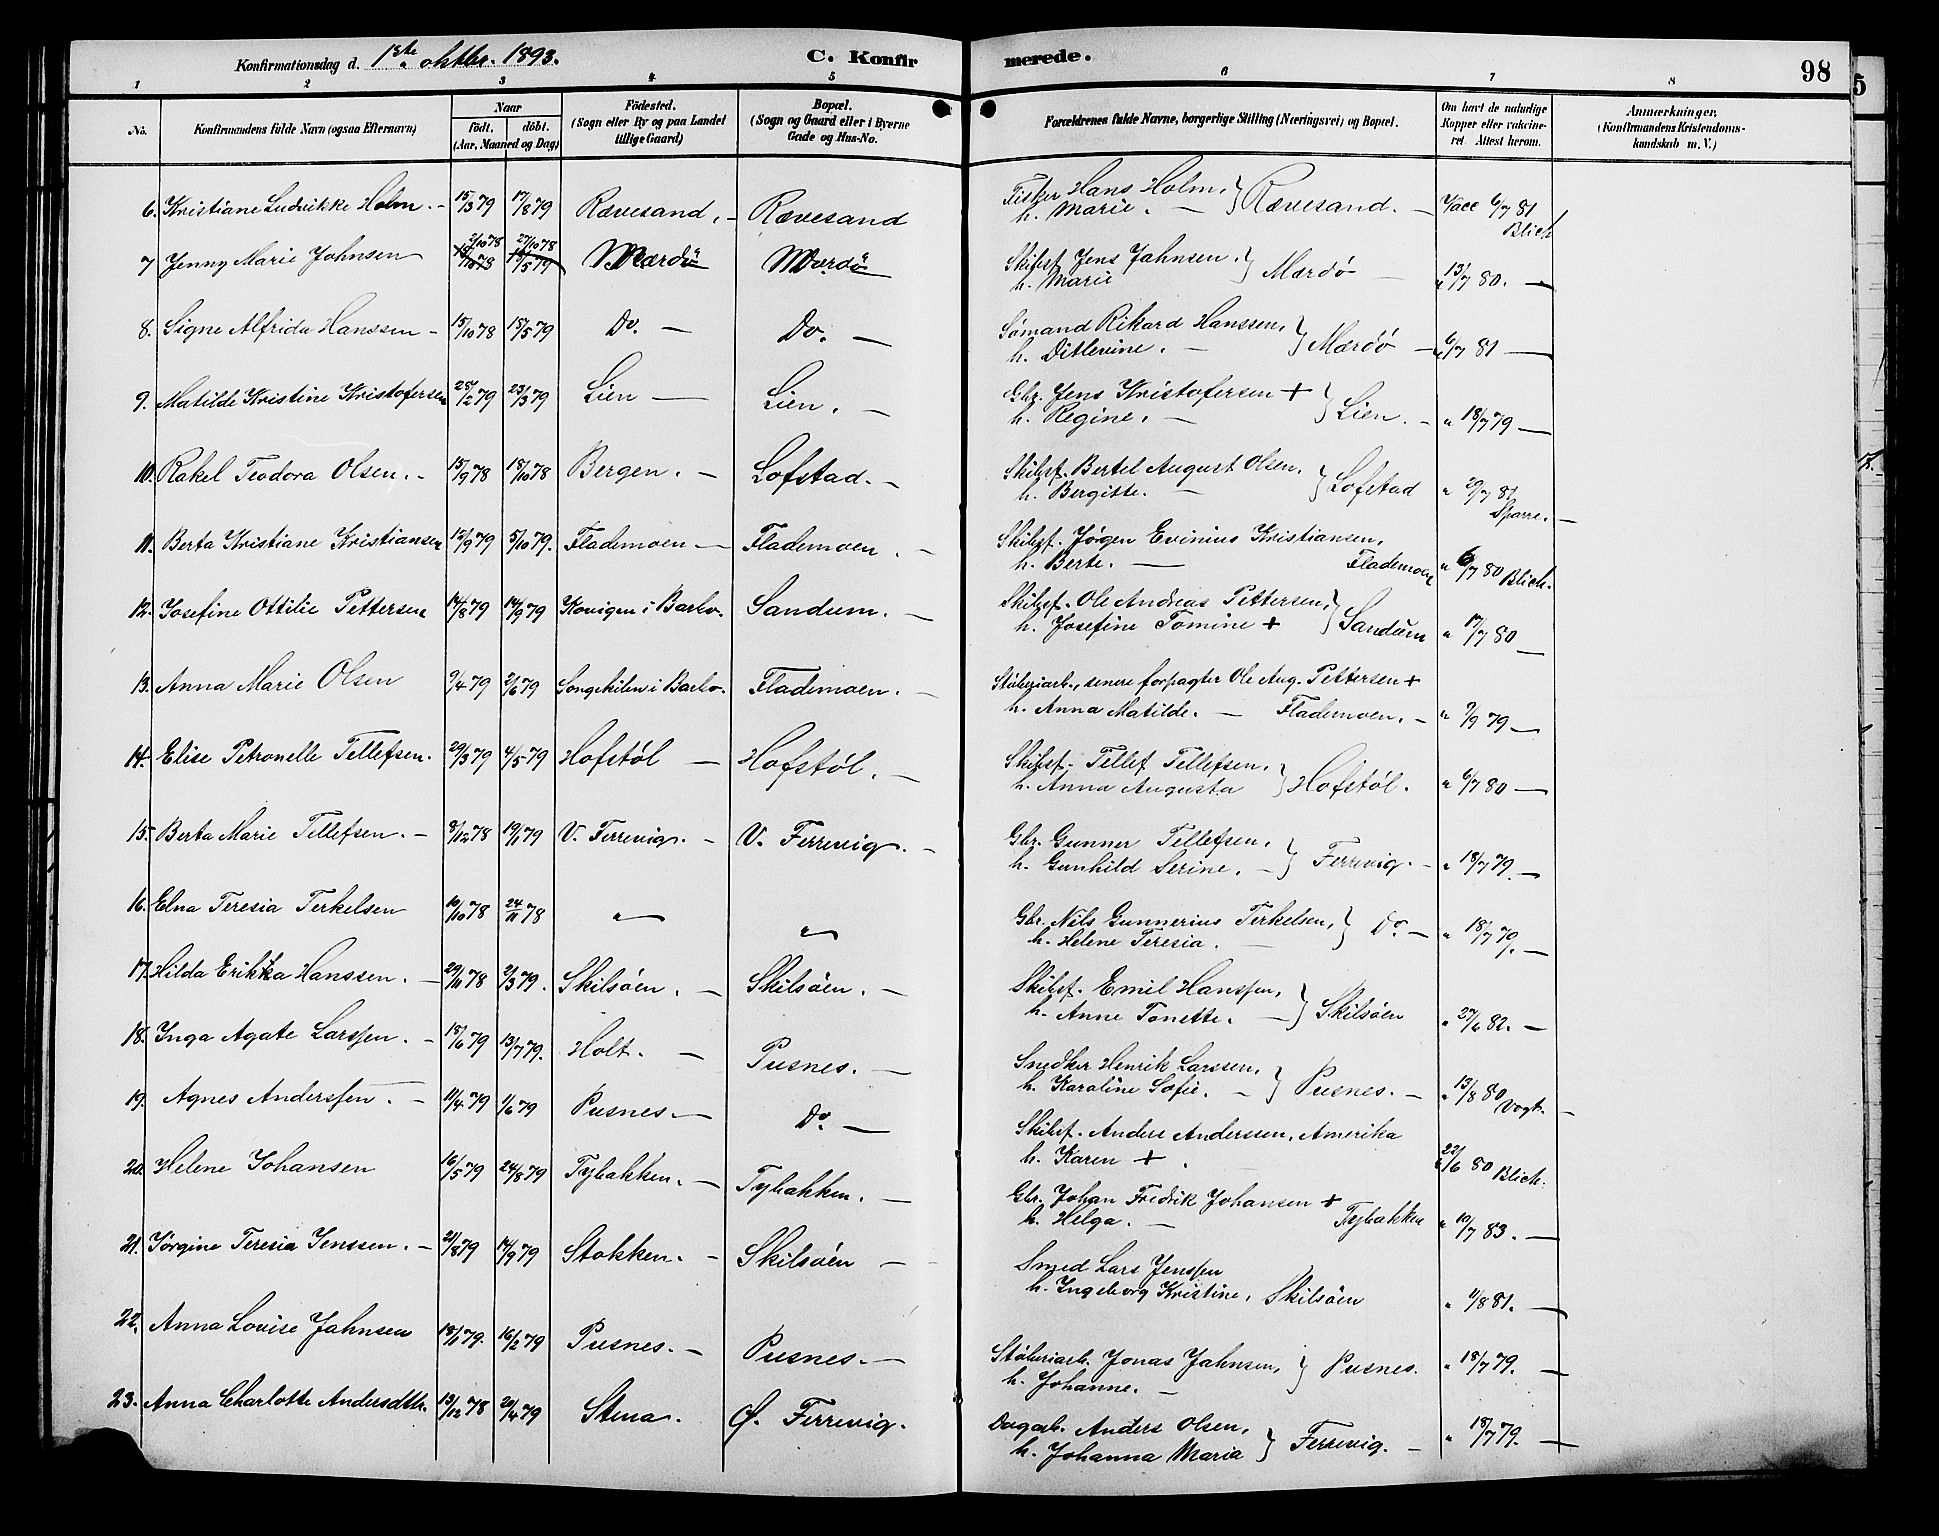 Konfirmationsdag d. 1ste oktbr. 1893. C. Konfirmerede. 98
1 2 3 4 5 6 7 8
No. Konfirmandens fulde Navn (ogsaa Efternavn) Naar födt, döbt. (Aar, Maaned og Dag) Födested. (Sogn eller By og paa Landet tillige Gaard) Bopæl. (Sogn og Gaard eller i Byerne Gade og Hus-No. Forældrenes fulde Navne, borgerlige Stilling (Næringsvei) og Bopæl. Om havt de naturlige Kopper eller vakcineret Attest herom. Anmærkninger. (Konfirmandens Kristendomskundskab m. V.)
6. Kristiane Ludvikke Holm. 15/3 79 17/8 79 Rævesand. Rævesand Fisker Hans Holm, h. Marie. } Rævesand. Vacc 6/7 81 Blich
7 Jenny Marie Johnsen 2/10 78 27/10 78 Mærdö Mærdö Skibst Jens Jahnsen. h. Marie } Mærdö " 13/7 80.
8. Signe Alfrida Hanssen 15/10 78 18/5 79 Do. Do. Sømand Rikard Hanssen, h. Ditlevine. } Mærdö " 6/7 81
9. Matilde Kristine Kristofersen 28/2 79 23/3 79 Lien Lien. Gbr. Jens Kristofersen + h. Regine. } Lien. " 18/7 79
10. Rakel Teodora Olsen. 15/9 78 18/10 78 Bergen. Lofstad. Skibsf. Bertel August Olsen, h. Bergitte. } Lofstad " 29/7 81 Sparre.
11. Berta Kristiane Kristiansen 12/9 79 5/10 79. Flademoen Flademoen. Skibsf. Jørgen Evinius Kristiansen, h. Berte. Flademoen " 6/7 80 Blich.
12. Josefine Ottilie Pettersen 14/8 79 14/9 79 Kovigen i Barbo. Sandum. Skibsf. Ole Andreas Pettersen, h. Josefine Tomine + } Sandum " 17/7 80
13. Anna Marie Olsen 9/4 79 2/6 79 Songekilen i Barbo. Flademoen. Støberiarb., senere forpagter Ole Aug. Pettersen + h. Anna Matilde. Flademoen. " 9/9 79
14. Elise Petronelle Tellefsen. 29/3 79 4/5 79 Hofstøl Hofstøl. Skibsf. Tellef Tellefsen, h. Anna Augusta } Hofstøl. " 6/7 80
15. Berta Marie Tellefsen. 8/12 78 19/1 79 V. Ferrevig. V. Ferrevig. Gbr. Gunner Tellefsen, h. Gunhild Serine. } Ferrevig. " 18/7 79.
16. Elna Teresia Terkelsen 10/10 78 24/11 78 " " Gbr. Nils Gunnerius Terkelsen, h. Helene Teresia. } Do. " 18/7 79.
17. Hilda Erikka Hanssen. 29/11 78 2/3 79. Skilsöen. Skilsöen. Skibsf. Emil Hanssen, h. Anne Tonette. } Skilsöen " 27/6 82.
18. Inga Agate Larssen. 18/6 79 13/7 79. Holt. Pusnes. Snedker Henrik Larssen, h. Karoline Sofie. } Pusnes. " 13/8 80 Vogt.
19. Agnes Anderssen. 11/4 79 1/6 79 Pusnes. Do. Skibsf. Anders Anderssen, Amerika h. Karen +. " 22/6 80 Blich.
20. Helene Johansen 16/5 79 24/8 79 Tybakken. Tybakken. Gbr. Johan Fredrik Johansen + h. Helga. Tybakken " 10/7 83.
21. Jörgine Teresia Jenssen. 21/8 79 14/9 79 Stokken. Skilsöen Smed Lars Jenssen h. Ingeborg Kristine, Skilsöen " 11/8 81.
22. Anna Lovise Jahnsen 18/1 79. 16/2 79 Pusnes. Pusnes. Støberiarb. Jonas Jahnsen, h. Johanne. } Pusnes. " 18/7 79.
23. Anna Charlotte Andersdtr. 13/12 78 20/4 79 Stena. Ø. Ferrevig. Dagarb. Anders Olsen, h. Johanna Maria } Ferrevig. " 18/7 79.